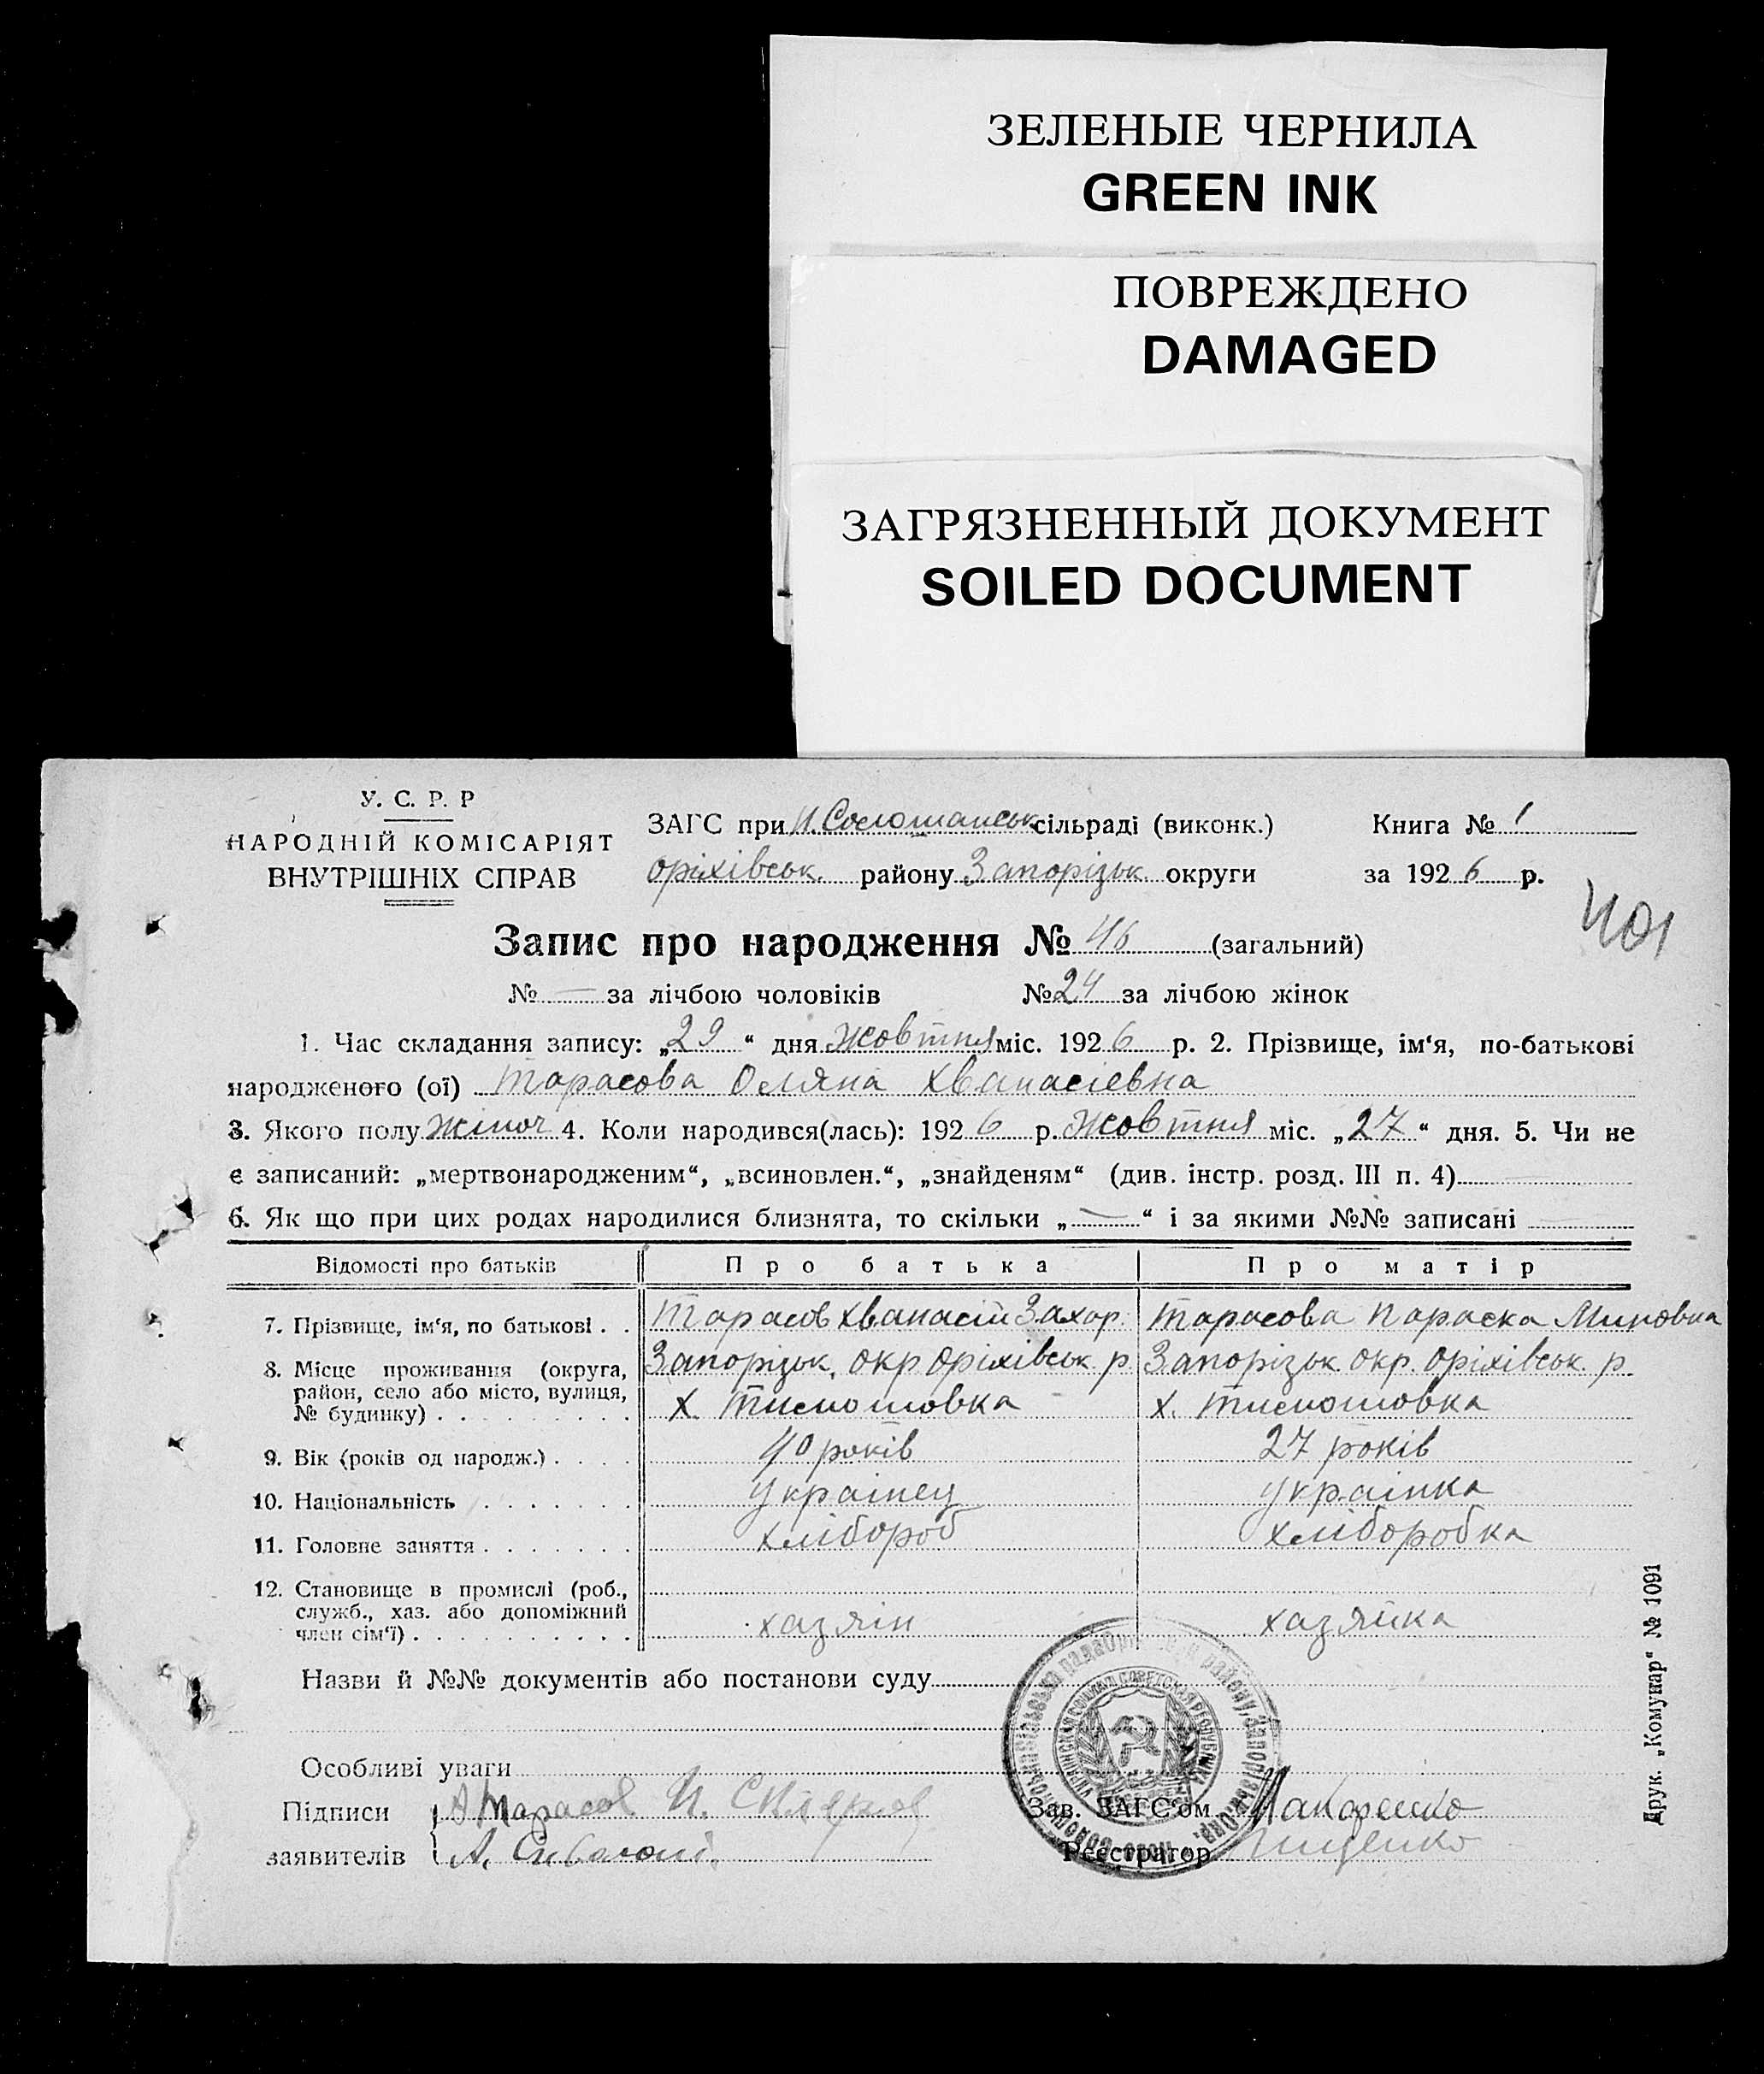 ЗЕЛЕНЫЕ ЧЕРНИЛА
GREEN INK
ПОВРЕЖДЕНО
DAMAGED
ЗАГРЯЗНЕННЫЙ ДОКУМЕНТ
SOILED DOCUMENT
У. С. Р. Р
НАРОДНІЙ КОМІСАРІЯТ
ВНУТРІШНІХ СПРАВ
ЗАГС при сільраді (виконк.) Книга № 1
Оріхівськ. району Запорізьк округи за 1926 р.
401
Запис про народження № 46 (загальний)
№ — за лічбою чоловіків № 24 за лічбою жінок
1. Час складання запису: „29“ дня Жовтня міс. 1926 р. 2. Прізвище, ім‘я, по-батькові
народженого (ої) Тарасова Оляна Хванасіевна
3. Якого полу Жіноч 4. Коли народився(лась): 1926 р. Жовтня міс. „27“ дня. 5. Чи не
є записаний: „мертвонародженим“, „всиновлен.“, „знайденям“ (див. інстр. розд. III п. 4) —
6. Як що при цих родах народилися близнята, то скільки „—“ і за якими №№ записані —
Відомості про батьків Про батька Про матір
7. Прізвище, ім‘я, по батькові . . Тарасов Хванасій Захор. Тарасова Параска Мировна
8. Місце проживання (округа, район, село або місто, вулиця, № будинку) Запорізьк. окр Оріхівськ. р. Запорізьк. окр. Оріхівськ. р.
х. х.
9. Вік (років од народж.) . . . . 40 років 27 років
10. Національність . . . . . . . Українец Українка
11. Головне заняття . . . . . . . хлібороб хліборобка
12. Становище в промислі (роб., служб., хаз. або допоміжний член сім‘ї) . . . . . . . . . . хазяін хазяйка
Назви й №№ документів або постанови суду
Особливі уваги
Підписи А Тарасов
заявителів А.
Зав. ЗАГС‘ом Макаренко
Реєстратор
Друк. „Комунар“ № 1091